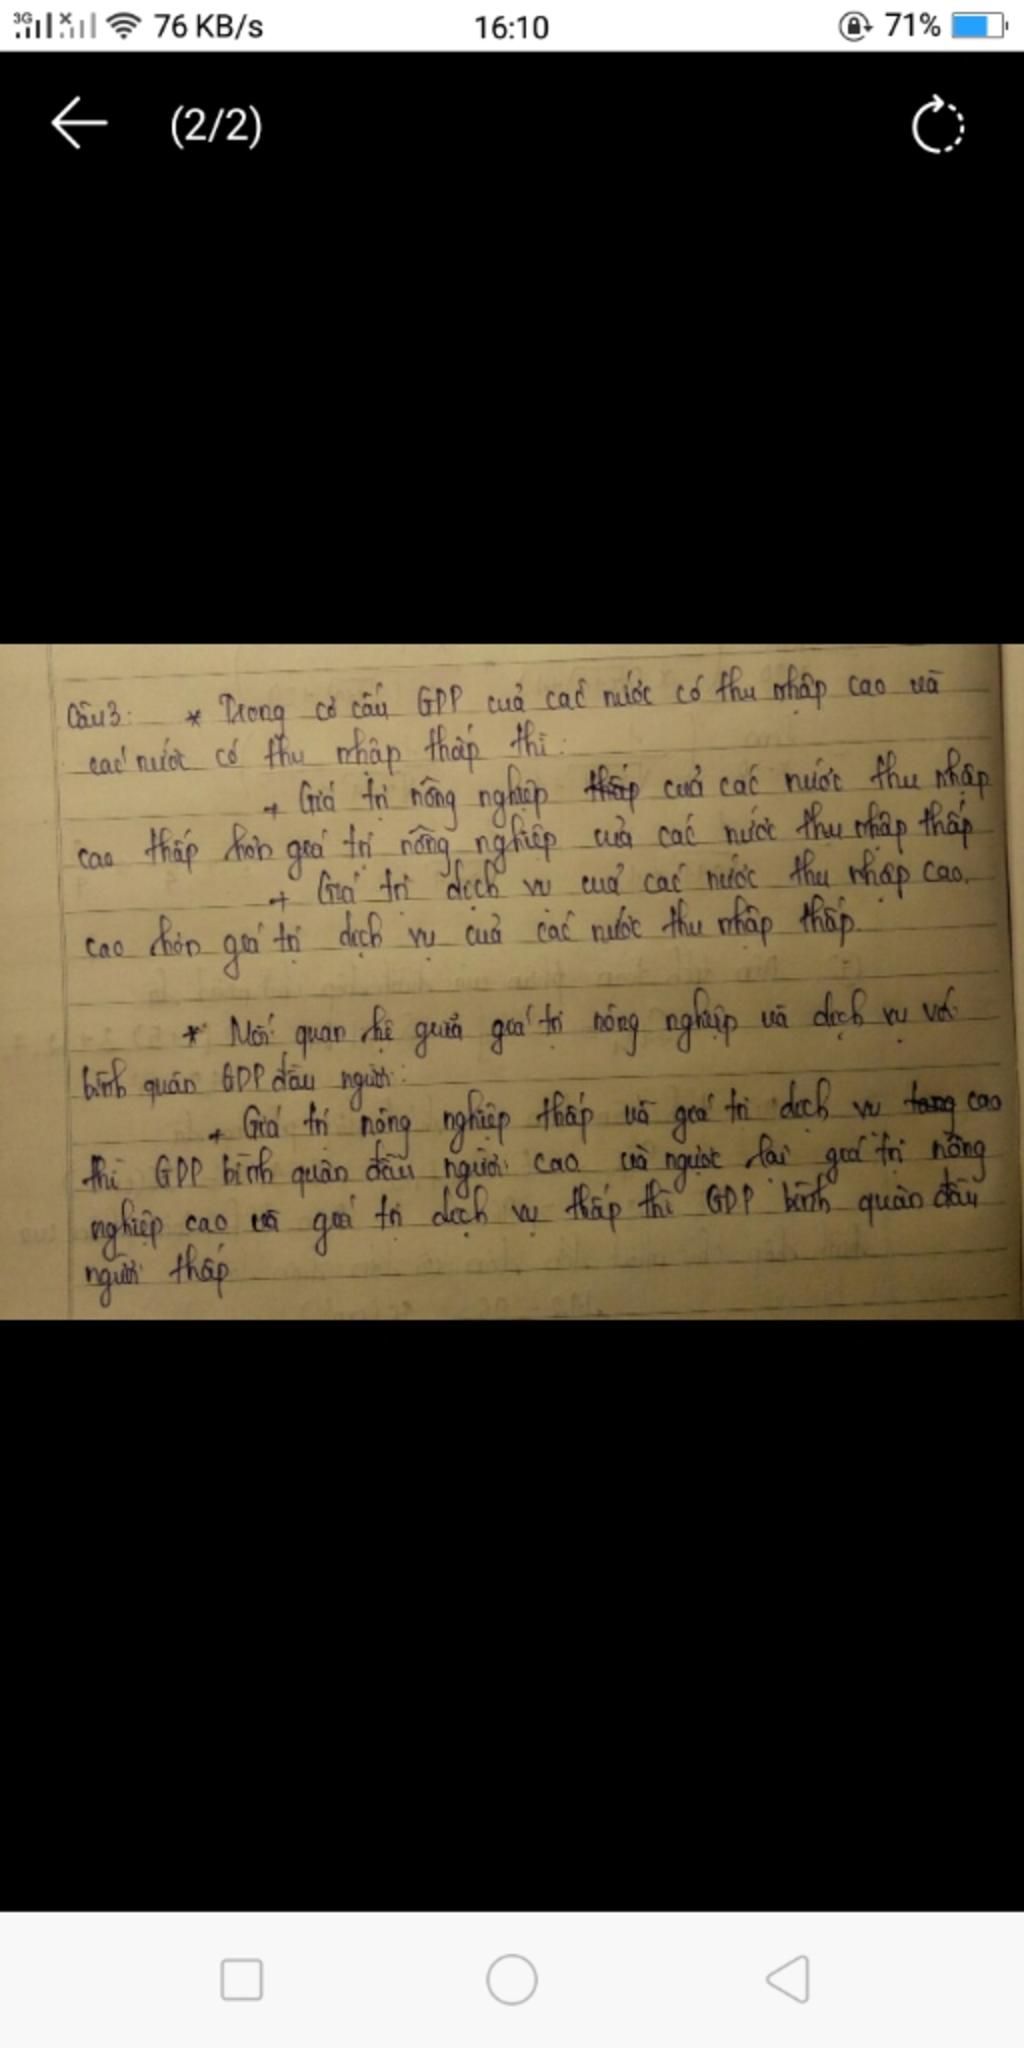 3G 76 KB/s 16:10 71%
(2/2)
Câu 3: * Trong cơ cấu GDP của các nước có thu nhập cao và
các nước có thu nhập thấp thì:
+ Giá trị nông nghiệp thấp của các nước thu nhập
cao thấp hơn giá trị nông nghiệp của các nước thu nhập thấp
+ Giá trị dịch vụ của các nước thu nhập cao.
cao hơn giá trị dịch vụ của các nước thu nhập thấp.
* Mối quan hệ giữa giá trị nông nghiệp và dịch vụ với
bình quân GDP đầu người:
+ Giá trị nông nghiệp thấp và giá trị dịch vụ tang cao
thì GDP bình quân đầu người cao và ngược lại giá trị nông
nghiệp cao và giá trị dịch vụ thấp thì GDP bình quân đầu
người thấp